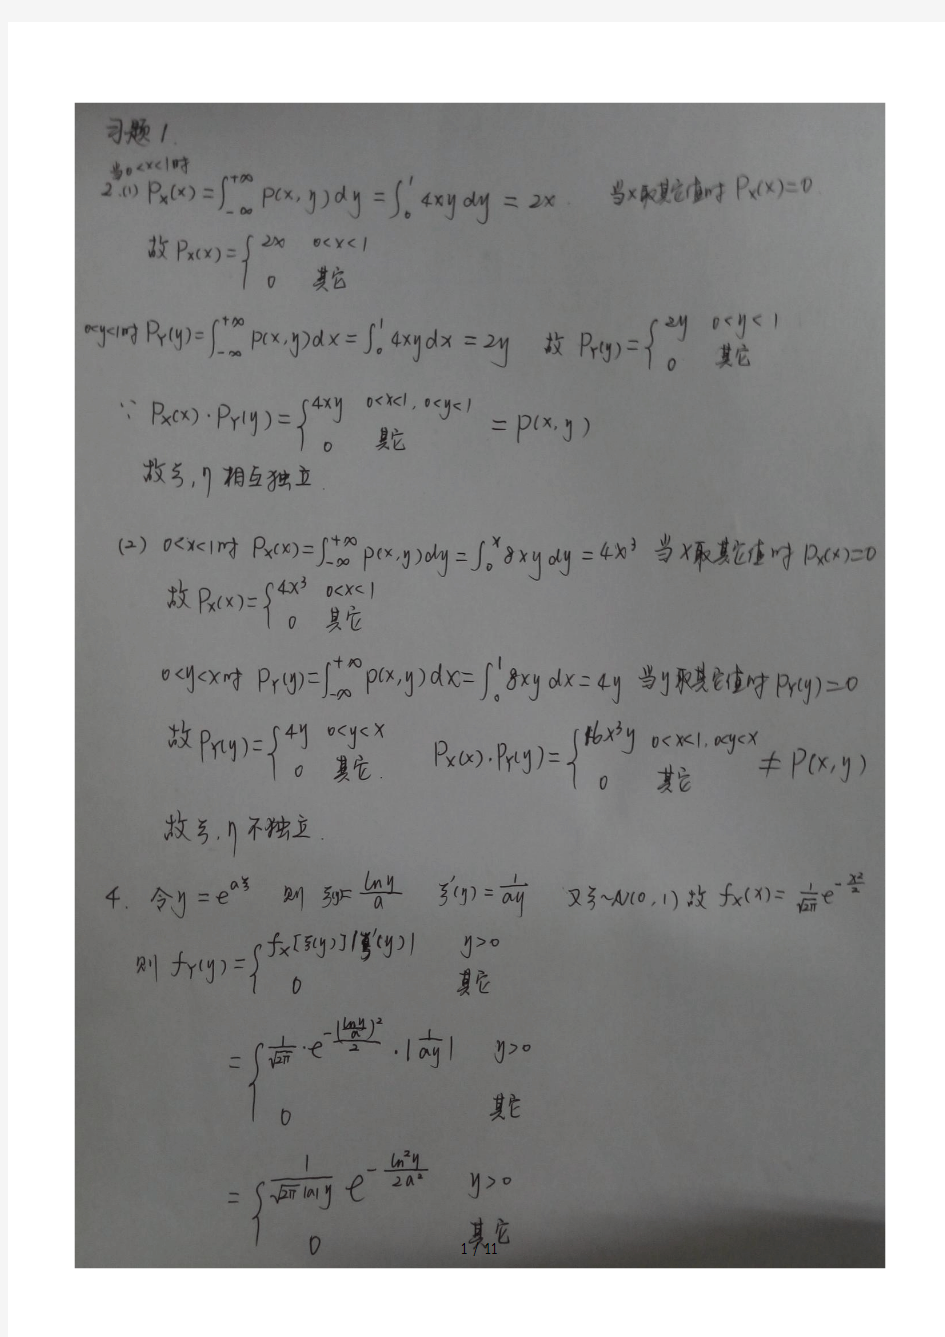 习题1.
当0<x<1时
2.(1) Px(x)=∫_{-∞}^{+∞} p(x,y)dy=∫_0^1 4xydy=2x 当x取其它值时 Px(x)=0
故 Px(x)={2x 0<x<1
0 其它
0<y<1时 PY(y)=∫_{-∞}^{+∞} p(x,y)dx=∫_0^1 4xydx=2y 故 PY(y)={2y 0<y<1
0 其它
∵ Px(x)·PY(y)={4xy 0<x<1, 0<y<1
0 其它 =p(x,y)
故ξ,η相互独立.
(2) 0<x<1时 Px(x)=∫_{-∞}^{+∞} p(x,y)dy=∫_0^x 8xydy=4x³ 当x取其它值时 Px(x)=0
故 Px(x)={4x³ 0<x<1
0 其它
0<y<x时 PY(y)=∫_{-∞}^{+∞} p(x,y)dx=∫_0^1 8xydx=4y 当y取其它值时 PY(y)=0
故 PY(y)={4y 0<y<x
0 其它. Px(x)·PY(y)={16x³y 0<x<1, 0<y<x
0 其它 ≠P(x,y)
故ξ,η不独立.
4. 令y=e^{aξ} 则 ξ= lny/a ξ'(y)=1/(ay) 又ξ~N(0,1) 故 fx(x)=1/√(2π) e^{-x²/2}
则 fY(y)={fx[ξ(y)]|ξ'(y)| y>0
0 其它
={1/√(2π)·e^{-(lny/a)²/2}·|1/(ay)| y>0
0 其它
={1/(√(2π)|a|y) e^{-ln²y/(2a²)} y>0
0 其它
1 / 11